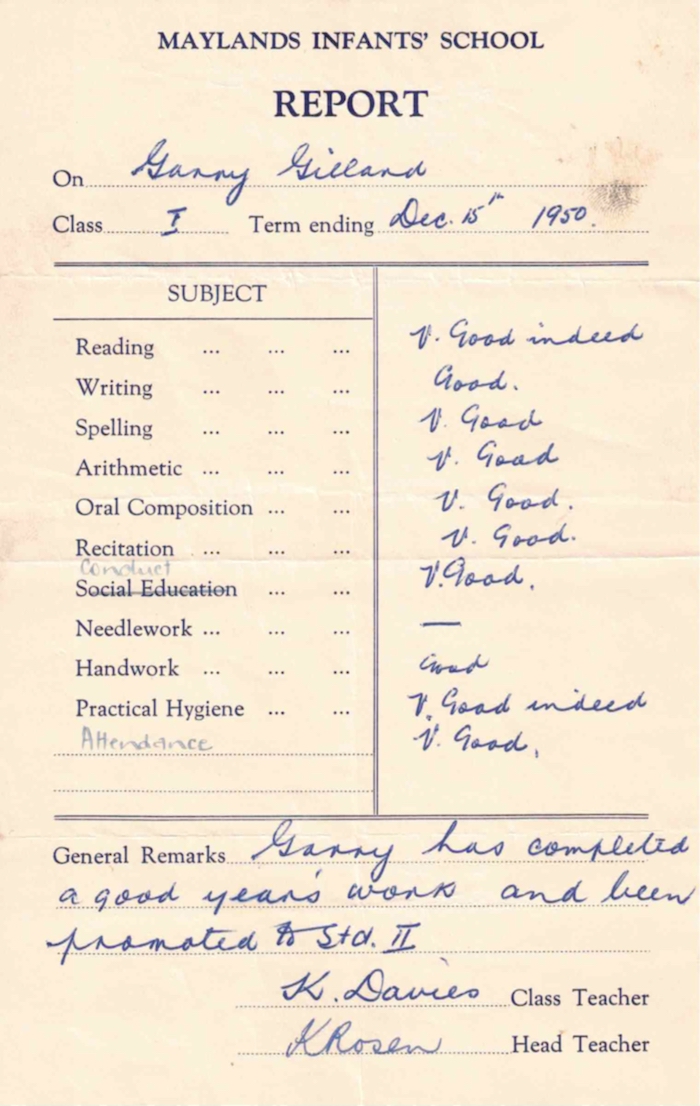 MAYLANDS INFANTS' SCHOOL
REPORT
On Garry Gilland
Class I Term ending Dec. 15th 1950.
SUBJECT
Reading ... ... ... V. Good indeed
Writing ... ... ... Good.
Spelling ... ... ... V. Good
Arithmetic ... ... ... V. Good
Oral Composition ... ... V. Good.
Recitation ... ... ... V. Good.
Conduct
Social Education ... ... V. Good.
Needlework ... ... ... —
Handwork ... ... ... Good
Practical Hygiene ... ... V. Good indeed
Attendance V. Good.
General Remarks Garry has completed
a good year's work and been
promoted to Std. II
K. Davies Class Teacher
K Rosen Head Teacher